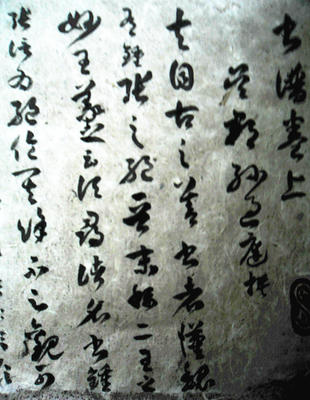 書譜卷上
吳郡孫過庭撰
夫自古之善書者漢魏
有鍾張之絕晉末稱二王之
妙王羲之云頃尋諸名書鍾
張信為絕倫其餘不足觀可